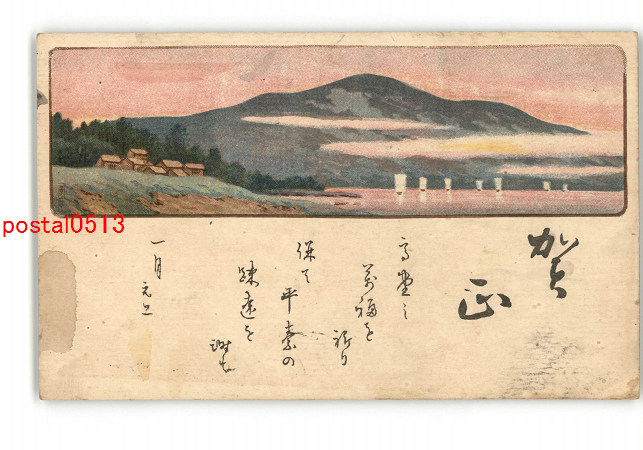 賀
正
高堂之
萬福を
祈り
併て平素の
疎遠を
謝す
一月元旦
postal0513